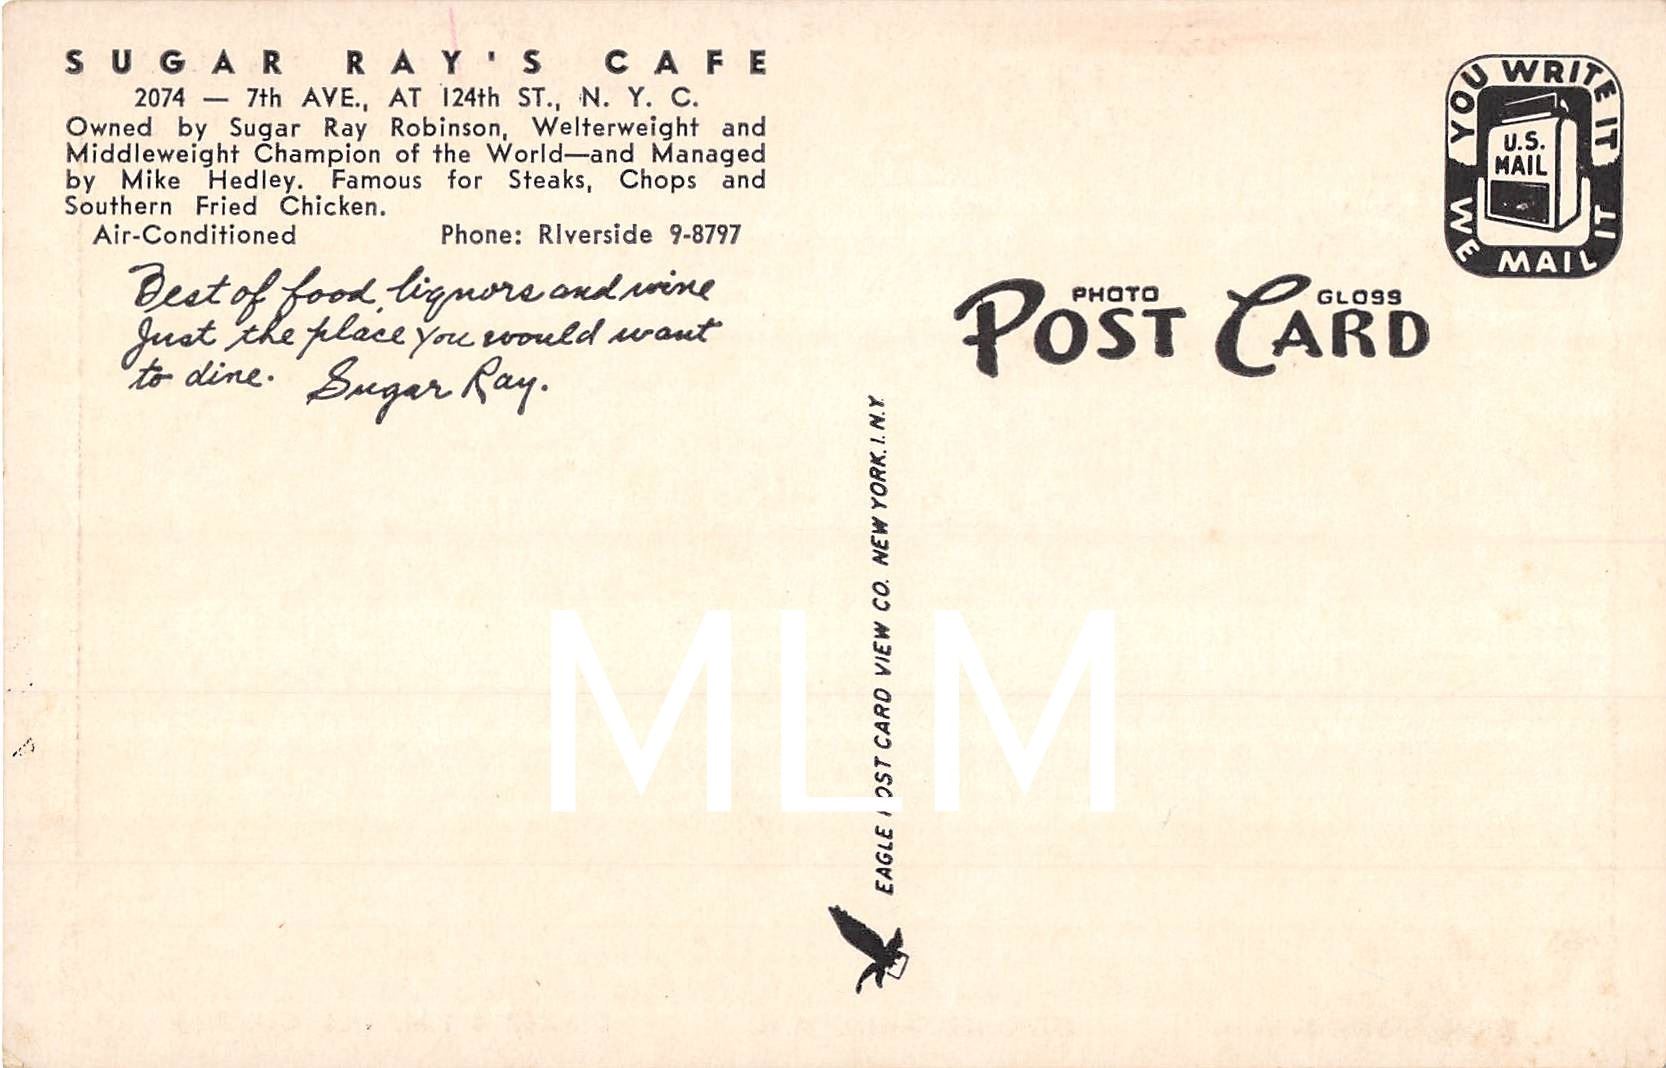 SUGAR RAY'S CAFE
2074 — 7th AVE., AT 124th ST., N. Y. C.
Owned by Sugar Ray Robinson, Welterweight and
Middleweight Champion of the World—and Managed
by Mike Hedley. Famous for Steaks, Chops and
Southern Fried Chicken.
Air-Conditioned Phone: RIverside 9-8797
Best of food, liquors and wine
Just the place you would want
to dine. Sugar Ray.
YOU WRITE IT
U.S.
MAIL
WE MAIL IT
PHOTO GLOSS
POST CARD
EAGLE POST CARD VIEW CO. NEW YORK.1.N.Y.
MLM